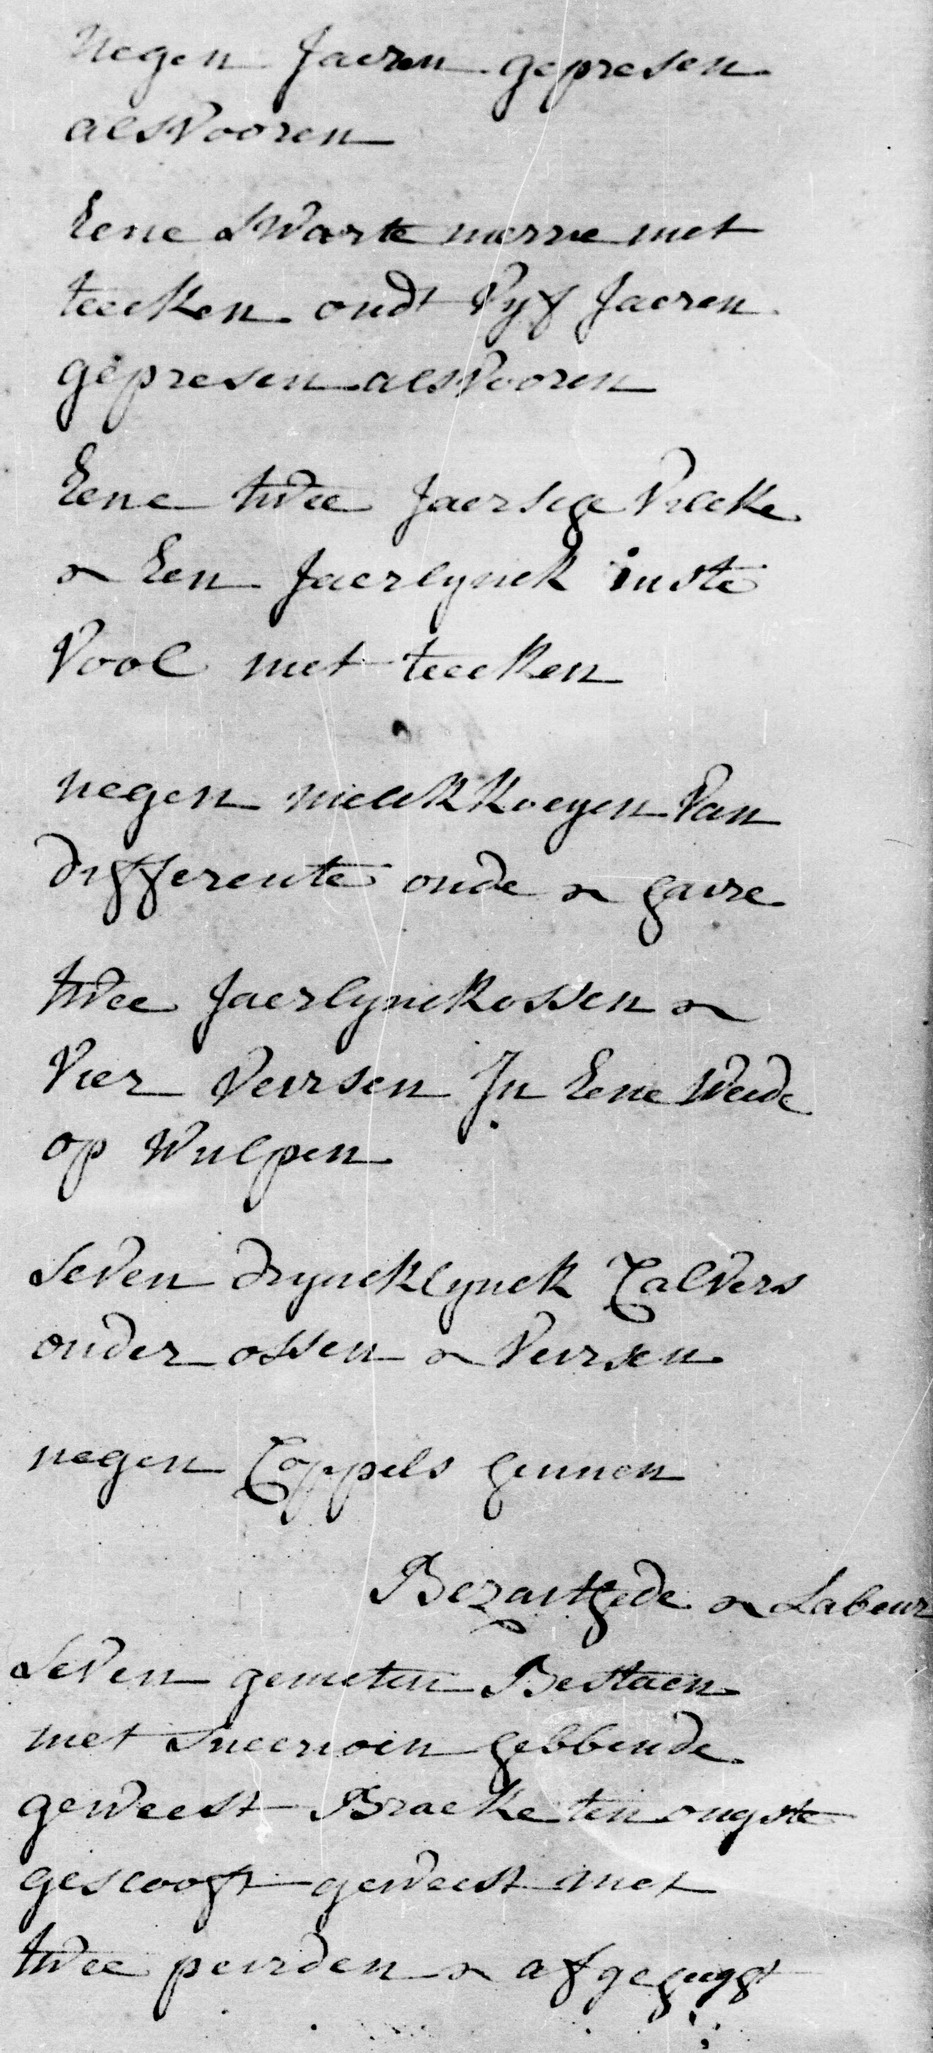 negen Jaeren gepresen
alsvooren
Eene swarte merrie met
teecken oudt vyf Jaeren
gepresen alsvooren
Eene twee Jaersige vticke
& Een Jaerlynck inste
vool met teecken
negen melckkoeyen van
differente oude & haire
twee Jaerlynckossen &
vier veirsen In Eene weede
op Wulpen
seven dryncklynck Calvers
onder ossen & veirsen
negen Coppels hinnen
Bezaithede & Labeur
seven gemeten Bestaen
met sucrioen hebbende
geweest Braeke ten ougste
gescooft geweest met
twee peirden &